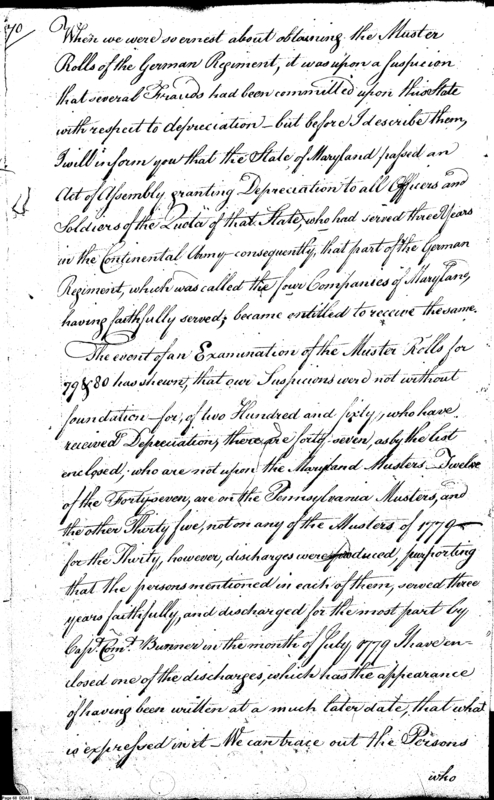 70
When we were so ernest about obtaining the Muster
Rolls of the German Regiment, it was upon a suspicion
that several Frauds had been committed upon this State
with respect to depreciation – but before I describe them,
I will inform you that the State of Maryland passed an
Act of Assembly granting Depreciation to all Officers and
Soldiers of the Quota of that State, who had served three Years
in the Continental Army consequently, that part of the German
Regiment, which was called the four Companies of Maryland,
having faithfully served, became entitled to receive the same.
The event of an Examination of the Muster Rolls for
79 & 80 has shewn, that our Suspicions were not without
foundation – for, of two Hundred and sixty, who have
received Depreciation, there are forty-seven, as by the list
enclosed, who are not upon the Maryland Musters – Twelve
of the Forty seven, are on the Pennsylvania Musters, and
the other Thirty five, not on any of the Musters of 1779 –
for the Thirty, however, discharges were produced, purporting
that the persons mentioned in each of them, served three
years faithfully, and discharged for the most part by
Capt. Comt. Bunner in the month of July 1779 I have en-
closed one of the discharges, which has the appearance
of having been written at a much later date, that what
is expressed in it – We can trace out the Persons
who